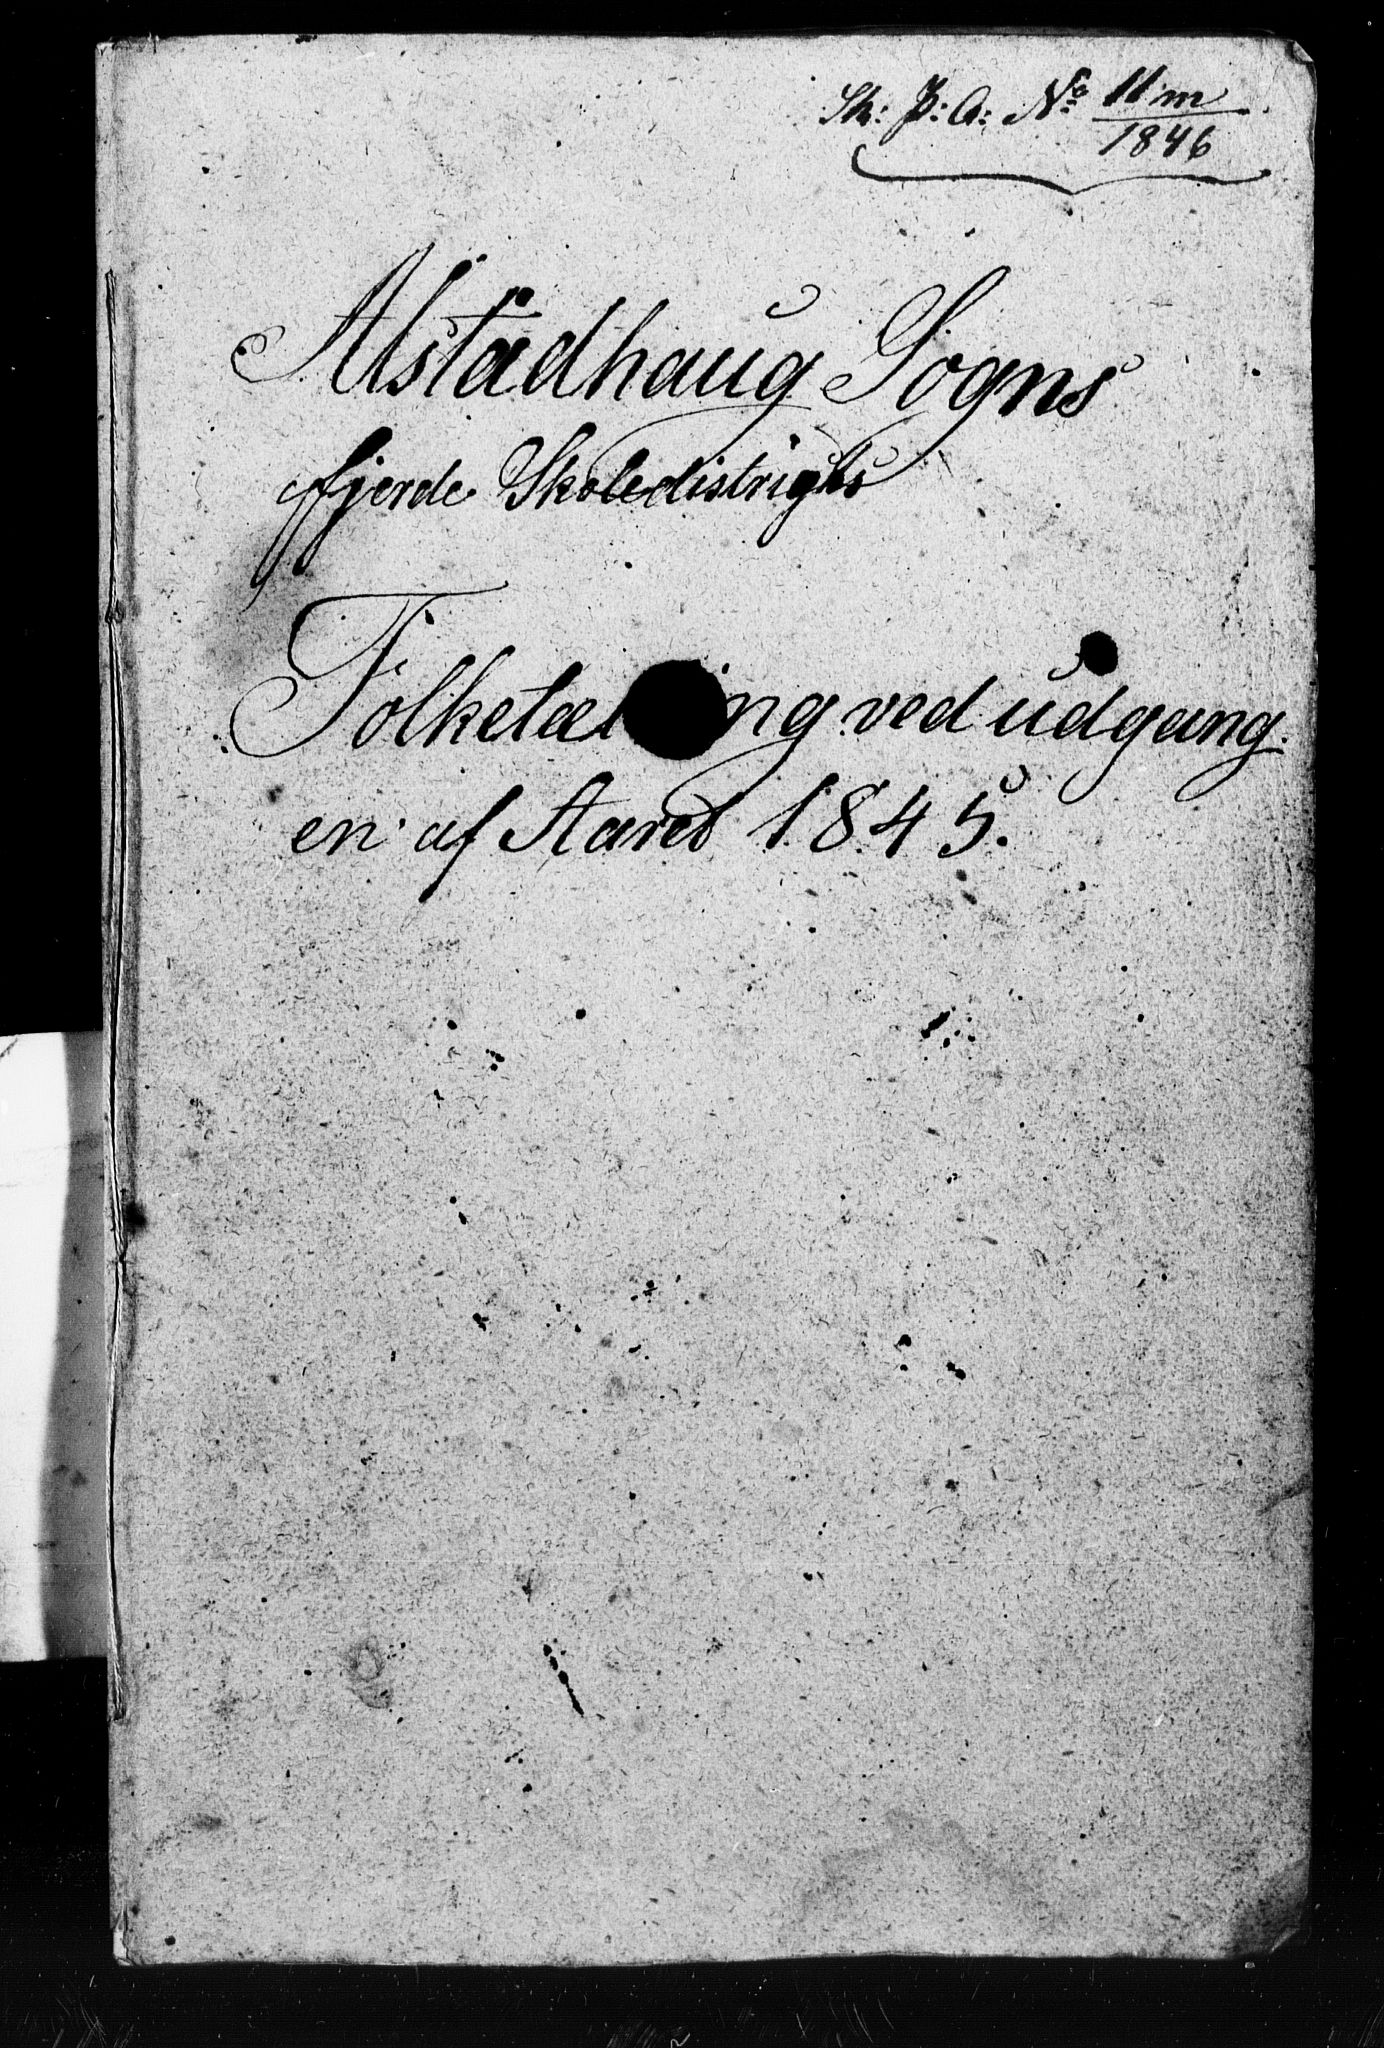 Sk: P: A: No 11 m
1846
Alstadhaug Sogns
fjerde Skoledistrigts
Folketæl ng ved udgang
en af Aaret 1845.